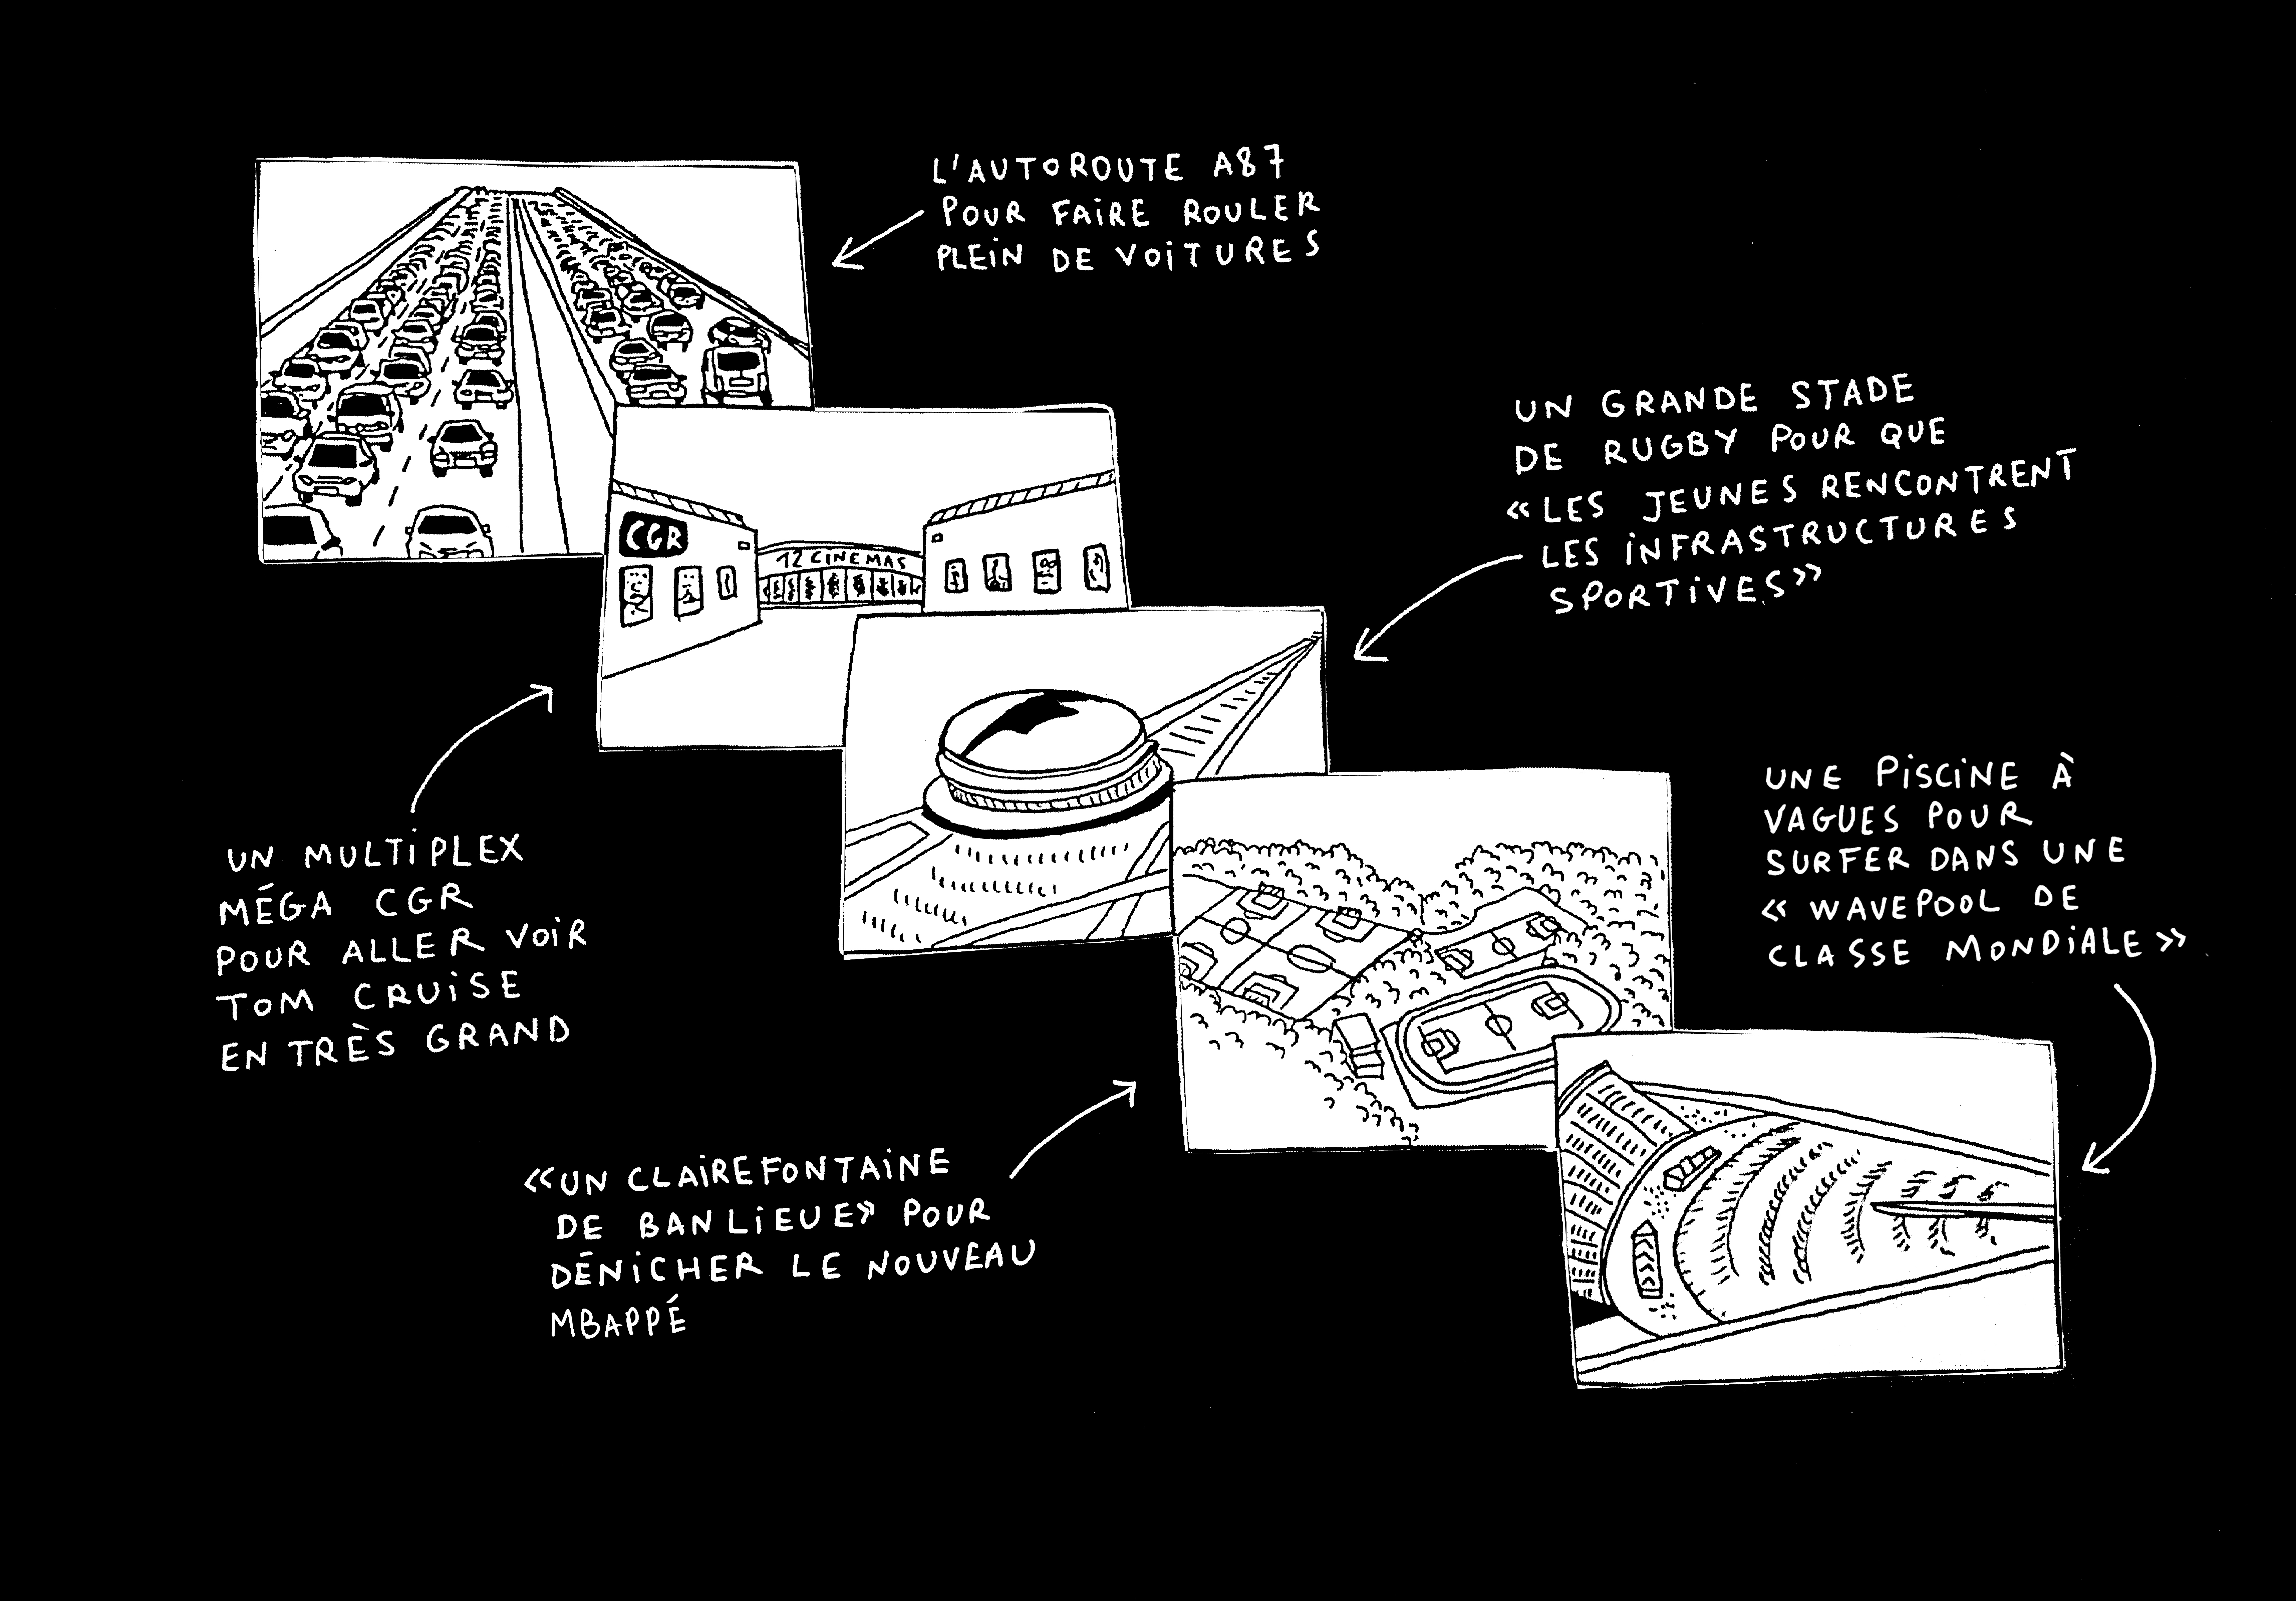 L'AUTOROUTE A87
POUR FAIRE ROULER
PLEIN DE VOITURES
CGR
12 CINEMAS
UN GRANDE STADE
DE RUGBY POUR QUE
«LES JEUNES RENCONTRENT
LES INFRASTRUCTURES
SPORTIVES»
UN MULTIPLEX
MÉGA CGR
POUR ALLER VOIR
TOM CRUISE
EN TRÈS GRAND
UNE PISCINE À
VAGUES POUR
SURFER DANS UNE
« WAVEPOOL DE
CLASSE MONDIALE »
«UN CLAIREFONTAINE
DE BANLIEUE» POUR
DÉNICHER LE NOUVEAU
MBAPPÉ